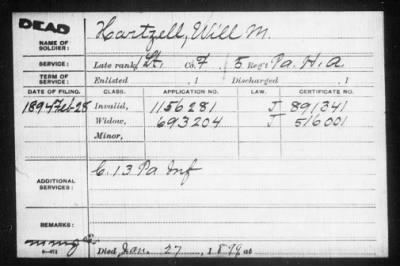 DEAD
NAME OF SOLDIER: Hartzell, Will M.
SERVICE: Late rank, Lt. Co. F, 5 Reg't Pa. H. A.
TERM OF SERVICE: Enlisted , 1 Discharged , 1
DATE OF FILING. CLASS. APPLICATION NO. LAW. CERTIFICATE NO.
1894 Feb 28 Invalid, 1156281 J 891341
Widow, 693204 J 516001
Minor,
ADDITIONAL SERVICES: C. 13 Pa Inf
REMARKS:
Died Jan. 27, 1899 at